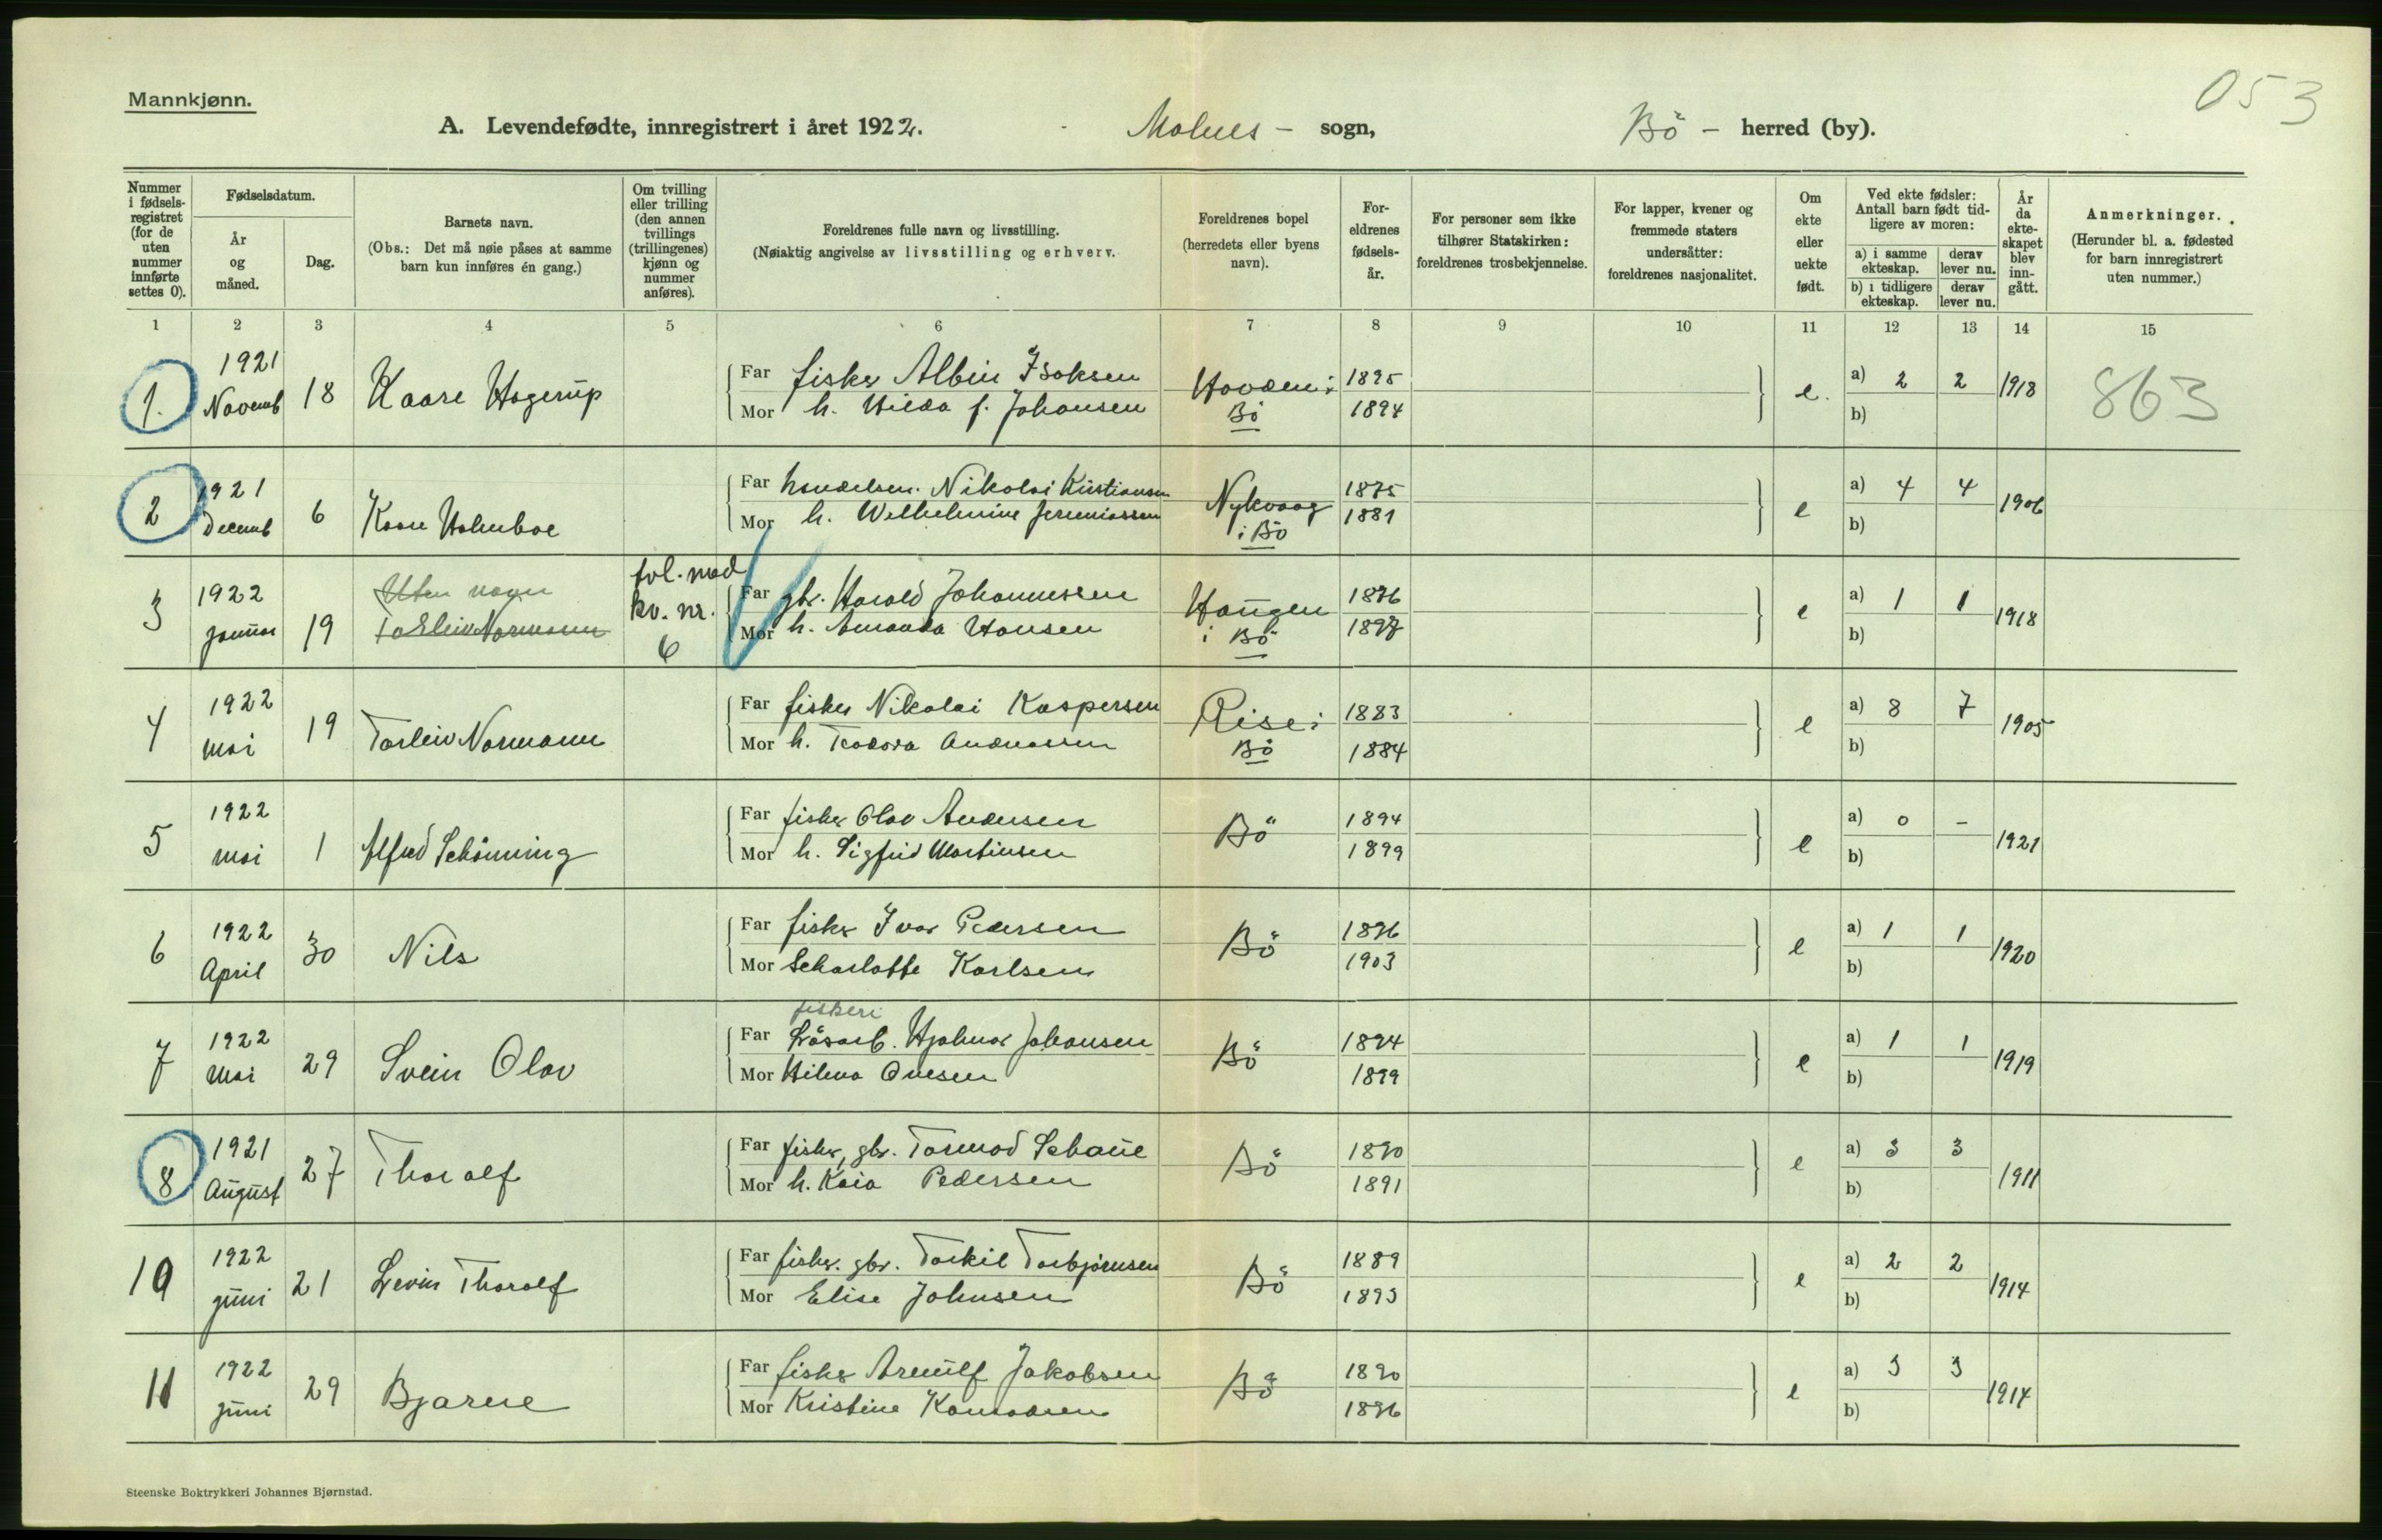 Mannkjønn.
053
A. Levendefødte, innregistrert i året 1922. Malnes - sogn, Bö - herred (by).
Nummer i fødsels-registret (for de uten nummer innførte settes 0).
Fødselsdatum.
År og måned.
Dag.
Barnets navn.
(Obs.: Det må nøie påses at samme barn kun innføres én gang.)
Om tvilling eller trilling (den annen tvillings (trillingenes) kjønn og nummer anføres).
Foreldrenes fulle navn og livsstilling.
(Nøiaktig angivelse av livsstilling og erhverv.
Foreldrenes bopel (herredets eller byens navn).
For-eldrenes fødsels-år.
For personer som ikke tilhører Statskirken: foreldrenes trosbekjennelse.
For lapper, kvener og fremmede staters undersåtter: foreldrenes nasjonalitet.
Om ekte eller uekte født.
Ved ekte fødsler: Antall barn født tid-ligere av moren:
a) i samme ekteskap.
derav lever nu.
b) i tidligere ekteskap.
derav lever nu.
År da ekte-skapet blev inn-gått.
Anmerkninger.
(Herunder bl. a. fødested for barn innregistrert uten nummer.)
1 2 3 4 5 6 7 8 9 10 11 12 13 14 15
1. 1921 Novemb 18 Kaare Hagerup
Far fisker Albin Isaksen Hovden i 1895 e. a) 2 2 1918 863
Mor h. Hilda f. Johansen Bö 1894 b)
2 1921 Decemb 6 Kaare Holmboe
Far handelsm. Nikolai Kristiansen Nykvaag 1875 e a) 4 4 1906
Mor h. Wilhelmine Jeremiassen i Bö 1881 b)
3 1922 januar 19 Uten navn Torleiv Normann tvl. med kv. nr. 6
Far gbr. Harald Johannessen Haugen 1896 e a) 1 1 1918
Mor h. Amanda Hansen i Bö 1897 b)
4 1922 mai 19 Torleiv Normann
Far fisker Nikolai Kaspersen Rise i 1883 e a) 8 7 1905
Mor h. Teodora Andreassen Bö 1884 b)
5 1922 mai 1 Alfred Schönning
Far fisker Olav Andersen Bö 1894 e a) 0 - 1921
Mor h. Sigfrid Martinsen 1899 b)
6 1922 April 30 Nils
Far fisker Ivar Pedersen Bö 1896 e a) 1 1 1920
Mor Scharlotte Karlsen 1903 b)
fiskeri
7 1922 mai 29 Svein Olav
Far Lösarb. Hjalmar Johansen Bö 1894 e a) 1 1 1919
Mor Hilma Ovesen 1899 b)
8 1921 August 27 Thoralf
Far fisker, gbr. Tormod Schaue Bö 1890 e a) 3 3 1911
Mor h. Kaia Pedersen 1891 b)
10 1922 juni 21 Levin Thoralf
Far fisker. gbr. Torkil Torbjørnsen Bö 1889 e a) 2 2 1914
Mor Elise Johnsen 1893 b)
11 1922 juni 29 Bjarne
Far fisker Arnulf Jakobsen Bö 1890 e a) 3 3 1914
Mor Kristine Konradsen 1896 b)
Steenske Boktrykkeri Johannes Bjørnstad.